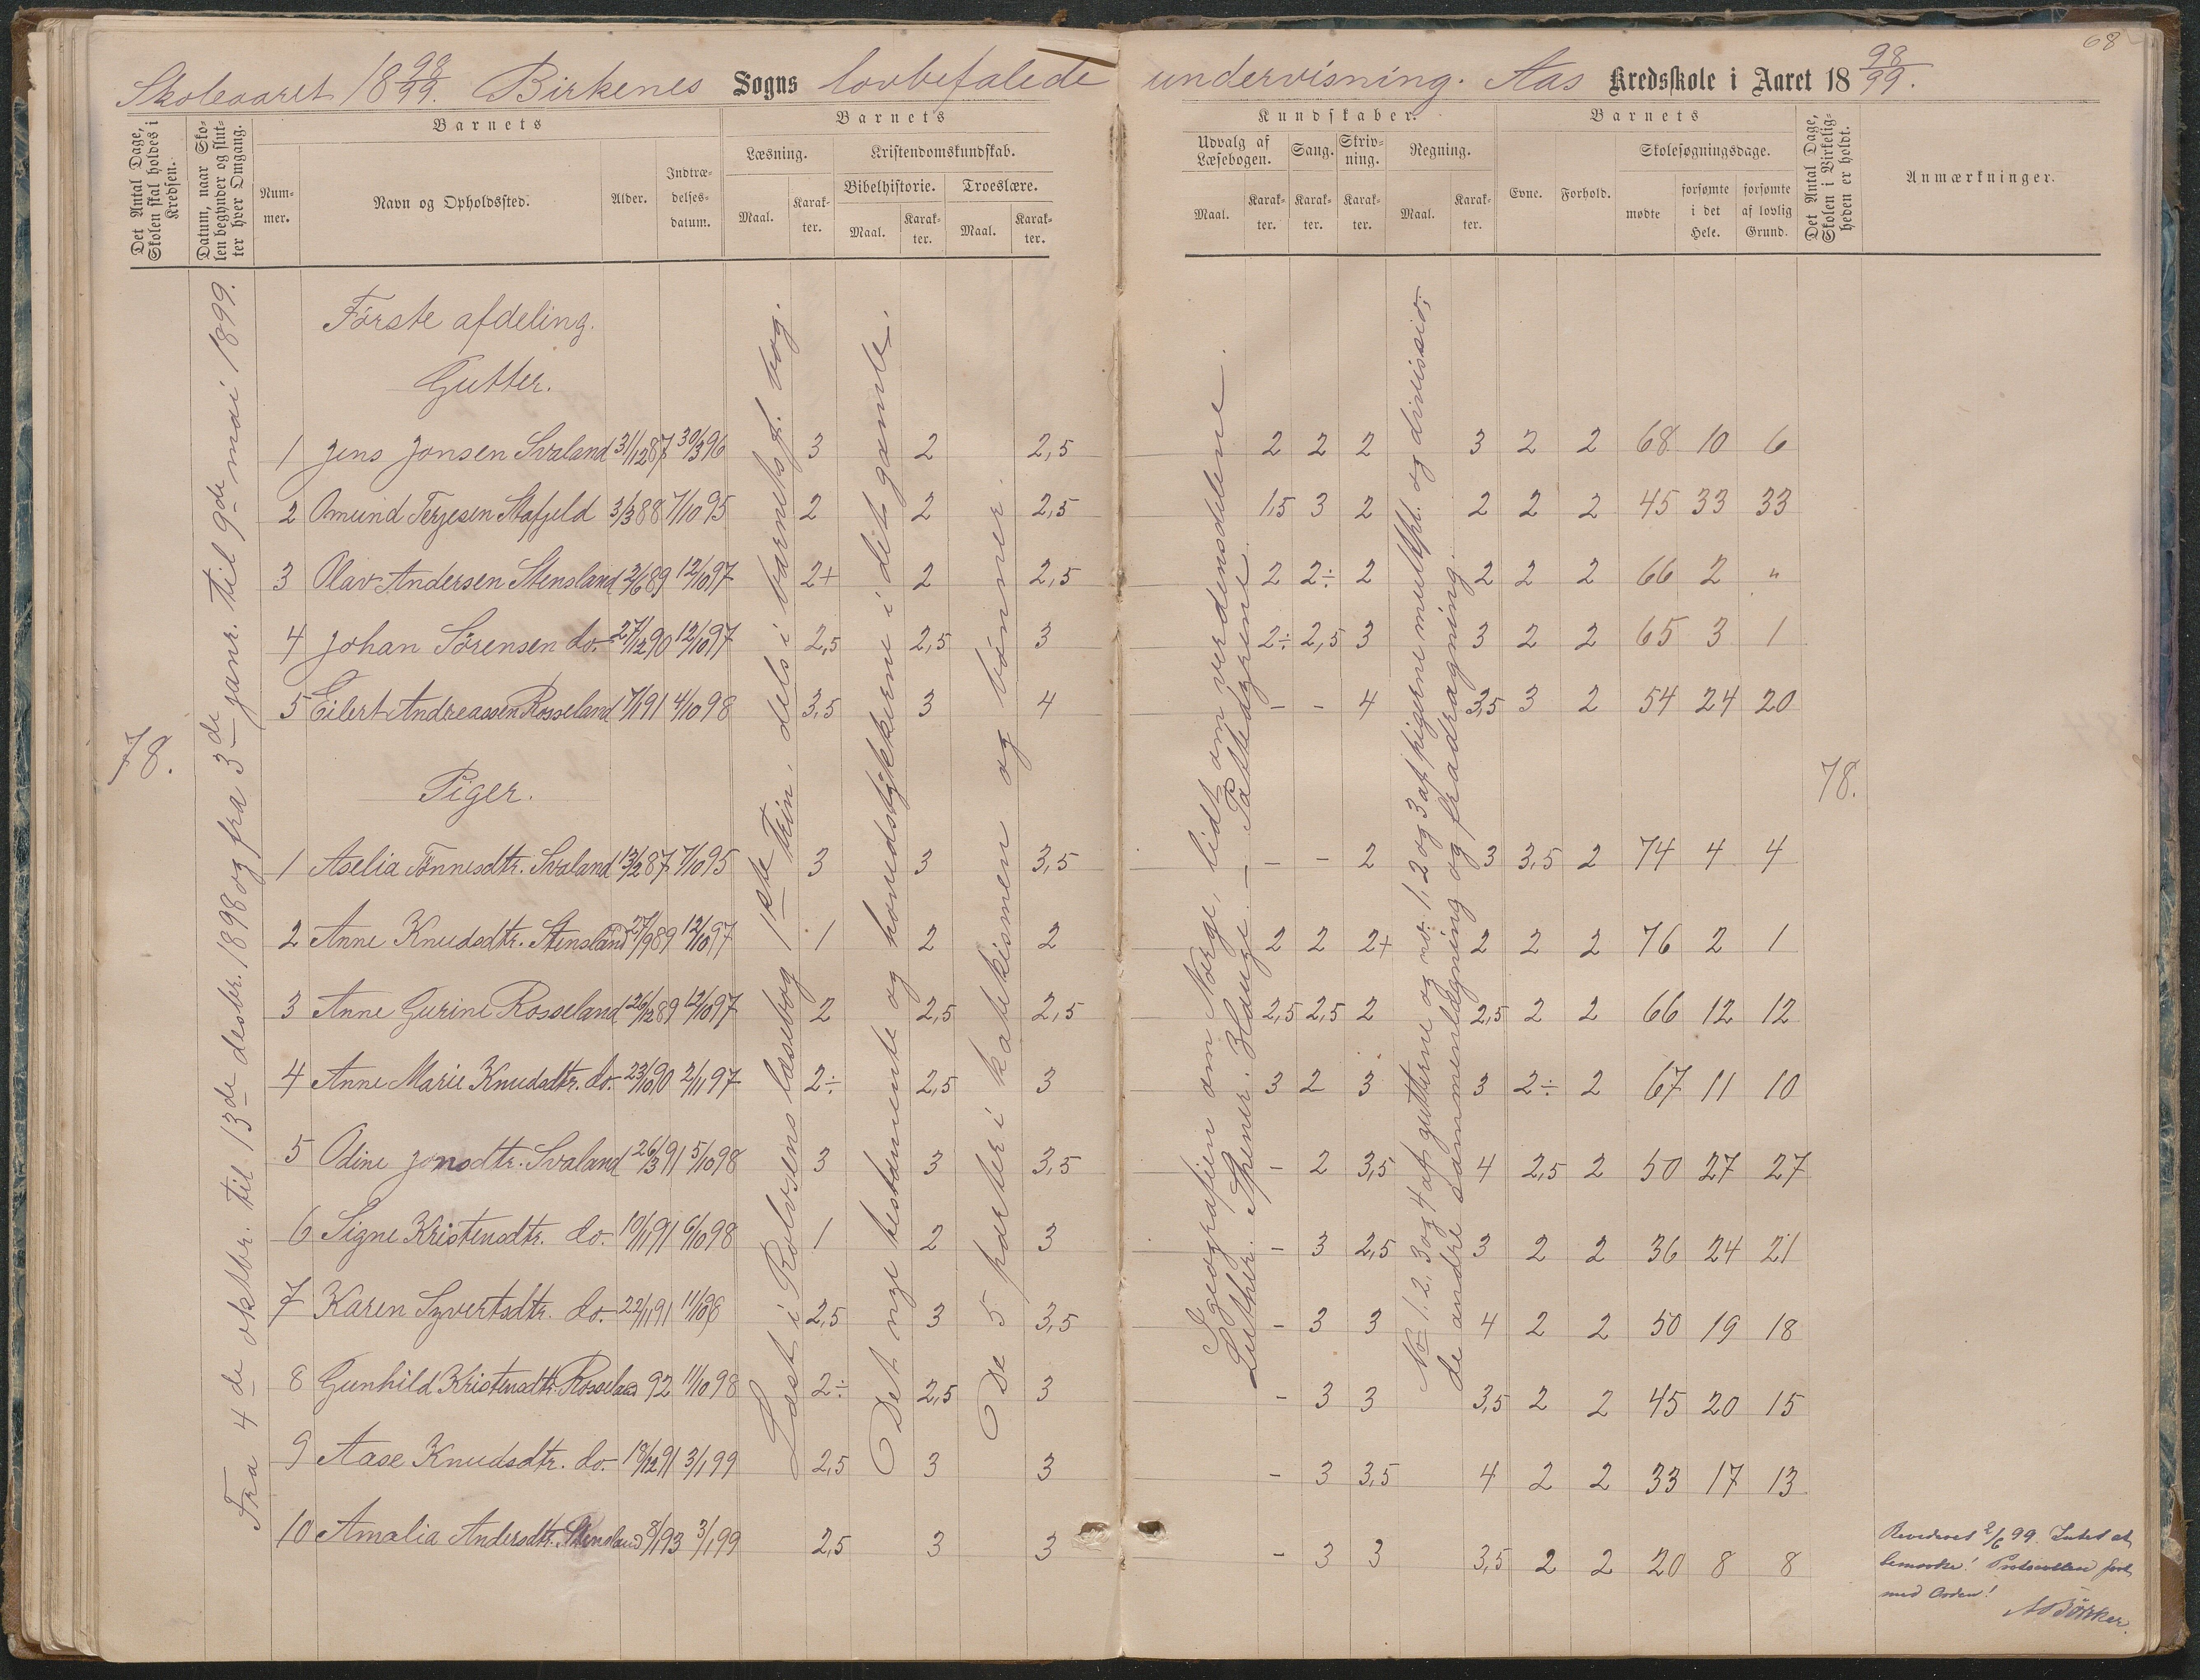 68
Skoleaaret 18 98/99. Birkenes Sogns lovbefalede undervisning. Aas Kredsskole i Aaret 18 98/99.
Det Antal Dage, Skolen skal holdes i Kredsen.
Datum, naar Skolen begynder og slutter hver Omgang.
Barnets
Nummer.
Navn og Opholdssted.
Alder.
Indtrædelsesdatum.
Barnets
Læsning.
Maal.
Karakter.
Kristendomskundskab.
Bibelhistorie.
Maal.
Karakter.
Troeslære.
Maal.
Karakter.
Kundskaber.
Udvalg af Læsebogen.
Maal.
Karakter.
Sang.
Karakter.
Skrivning.
Karakter.
Regning.
Maal.
Karakter.
Barnets
Evne.
Forhold.
Skolesøgningsdage.
mødte
forsømte i det Hele.
forsømte af lovlig Grund.
Det Antal Dage, Skolen i Virkeligheden er holdt.
Anmærkninger.
78.
Fra 4de oktbr. til 13de desbr. 1898 og fra 3de janr. til 9de mai 1899.
Læst i Rolvsens læsebog 1ste Trin, dels i barnets f. bog.
Det nye testamente og hovedstykkerne i det gamle.
De 5 parter i katekismen og bönner.
I geografien om Norge, lidt om verdensdelene.
Luther. Spener. Hauge. – Patteagrene.
No 1, 2, 3 og 4 af gutterne og no. 1, 2 og 3 af pigerne multipl. og division,
de andre sammenlægning og fradragning.
78.
Förste afdeling.
Gutter.
1 Jens Jonsen Svaland 31/12 87 30/3 96 3 2 2,5 2 2 2 3 2 2 68 10 6
2 Omund Terjesen Stafjeld 3/3 88 7/10 95 2 2 2,5 1,5 3 2 2 2 2 45 33 33
3 Olav Andersen Stensland 2/6 89 12/10 97 2+ 2 2,5 2 2÷ 2 2 2 2 66 2 "
4 Johan Sörensen do. 27/12 90 12/10 97 2,5 2,5 3 2÷ 2,5 3 3 2 2 65 3 1
5 Eilert Andreassen Rosseland 17/1 91 4/10 98 3,5 3 4 – – 4 3,5 3 2 54 24 20
Piger.
1 Aselia Tönnesdtr. Svaland 13/2 87 7/10 95 3 3 3,5 – – 2 3 3,5 2 74 4 4
2 Anne Knudsdtr. Stensland 27/9 89 12/10 97 1 2 2 2 2 2+ 2 2 2 76 2 1
3 Anne Gurine Rosseland 26/12 89 12/10 97 2 2,5 2,5 2,5 2,5 2 2,5 2 2 66 12 12
4 Anne Marie Knudsdtr. do. 23/10 90 2/11 97 2÷ 2,5 3 3 2 3 3 2÷ 2 67 11 10
5 Odine Jonsdtr. Svaland 26/3 91 5/10 98 3 3 3,5 – 2 3,5 4 2,5 2 50 27 27
6 Signe Kristensdtr. do. 10/11 91 6/10 98 1 2 3 – 3 2,5 3 2 2 36 24 21
7 Karen Syvertsdtr. do. 22/11 91 11/10 98 2,5 3 3,5 – 3 3 4 2 2 50 19 18
8 Gunhild Kristensdtr. Rosseland 92 11/10 98 2÷ 2,5 3 – 3 3 3,5 2 2 45 20 15
9 Aase Knudsdtr. do. 18/12 91 3/1 99 2,5 3 3 – 3 3,5 4 2 2 33 17 13
10 Amalia Andersdtr. Stensland 8/1 93 3/1 99 2,5 3 3 – 3 3 3,5 2 2 20 8 8
Revideret 2/6 99. Intet at
bemærke! Protocollen ført
med Orden!